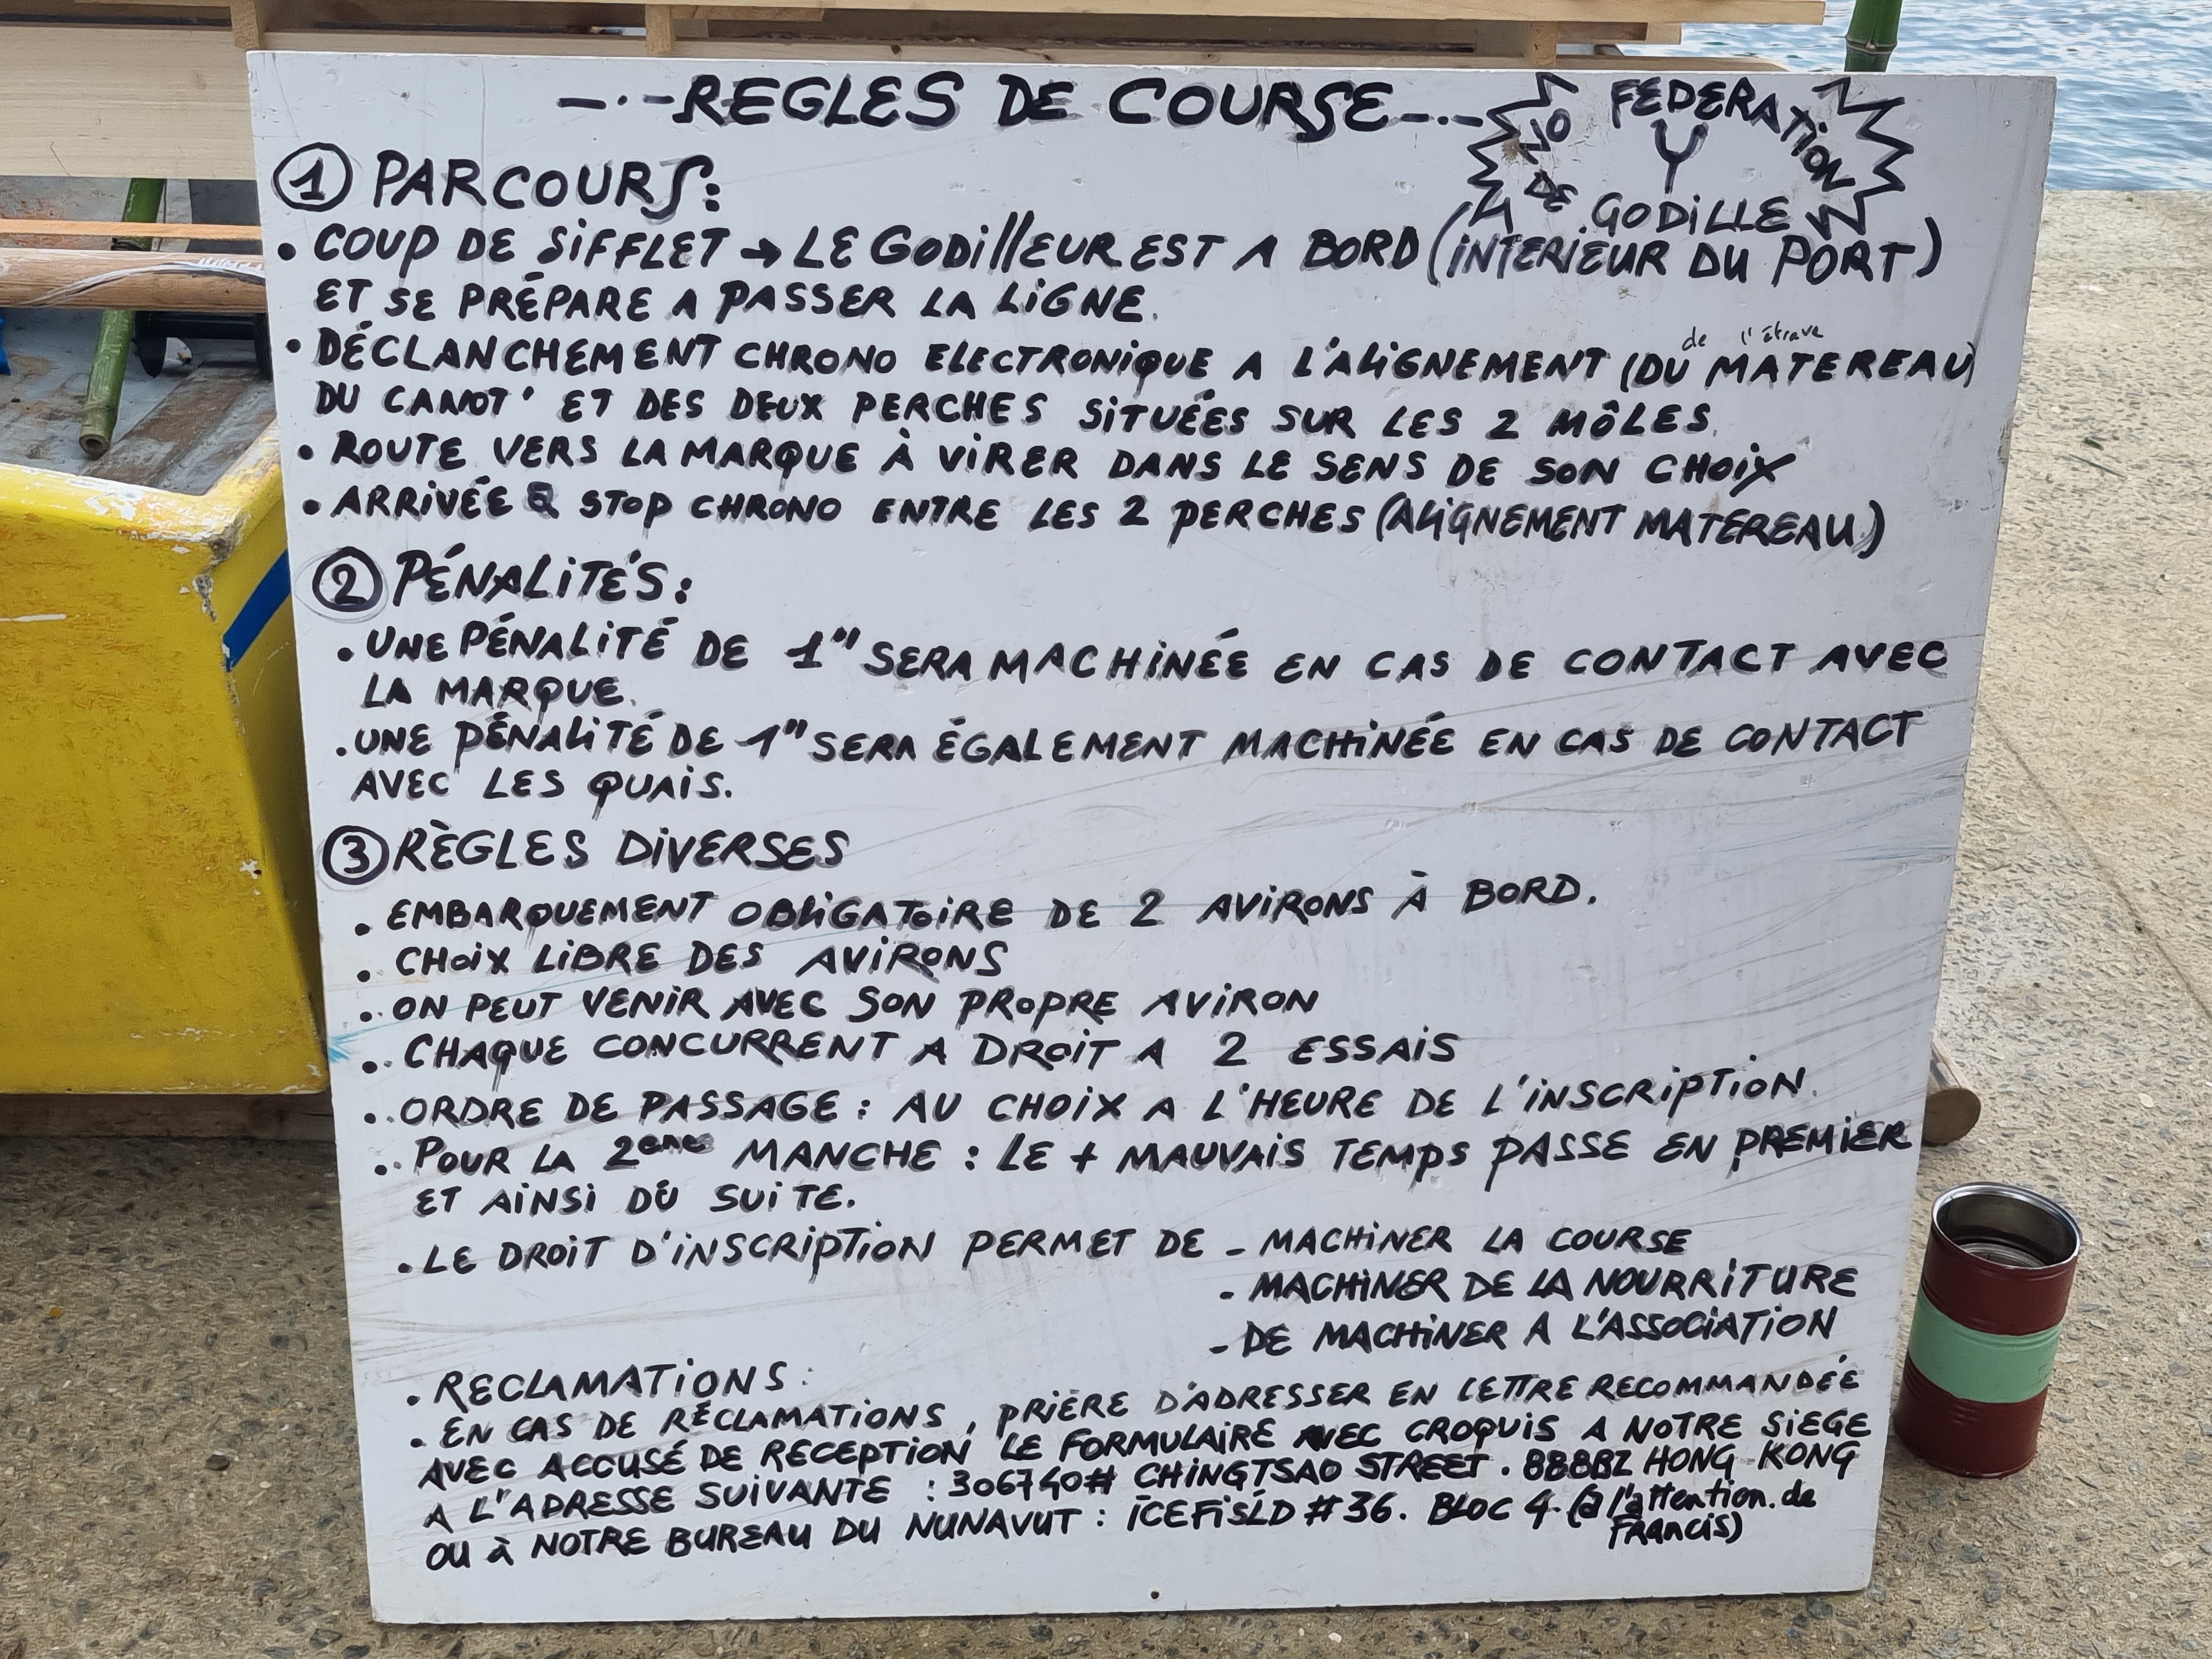 —·—REGLES DE COURSE—·—
FEDERATION
DE GODILLE
① PARCOURS:
• COUP DE SIFFLET → LE GODILLEUR EST A BORD (INTERIEUR DU PORT)
ET SE PRÉPARE A PASSER LA LIGNE.
de l'étrave
• DÉCLANCHEMENT CHRONO ELECTRONIQUE A L'ALIGNEMENT (DU MATEREAU)
DU CANOT' ET DES DEUX PERCHES SITUÉES SUR LES 2 MÔLES.
• ROUTE VERS LA MARQUE À VIRER DANS LE SENS DE SON CHOIX
• ARRIVÉE STOP CHRONO ENTRE LES 2 PERCHES (ALIGNEMENT MATEREAU)
② PÉNALITÉS:
• UNE PÉNALITÉ DE 1" SERA MACHINÉE EN CAS DE CONTACT AVEC
LA MARQUE.
• UNE PÉNALITÉ DE 1" SERA ÉGALEMENT MACHINÉE EN CAS DE CONTACT
AVEC LES QUAIS.
③ RÈGLES DIVERSES
• EMBARQUEMENT OBLIGATOIRE DE 2 AVIRONS À BORD.
• CHOIX LIBRE DES AVIRONS
• ON PEUT VENIR AVEC SON PROPRE AVIRON
• CHAQUE CONCURRENT A DROIT A 2 ESSAIS
• ORDRE DE PASSAGE : AU CHOIX A L'HEURE DE L'INSCRIPTION.
• POUR LA 2eme MANCHE : LE + MAUVAIS TEMPS PASSE EN PREMIER
ET AINSI DU SUITE.
• LE DROIT D'INSCRIPTION PERMET DE - MACHINER LA COURSE
- MACHINER DE LA NOURRITURE
- DE MACHINER A L'ASSOCIATION
• RECLAMATIONS :
• EN CAS DE RÉCLAMATIONS, PRIÈRE D'ADRESSER EN LETTRE RECOMMANDÉE
AVEC ACCUSÉ DE RECEPTION LE FORMULAIRE AVEC CROQUIS A NOTRE SIEGE
A L'ADRESSE SUIVANTE : 306740# CHINGTSAO STREET. 888BZ HONG KONG
OU à NOTRE BUREAU DU NUNAVUT : ICEFIELD #36. BLOC 4. (à l'attention de
FRANCIS)